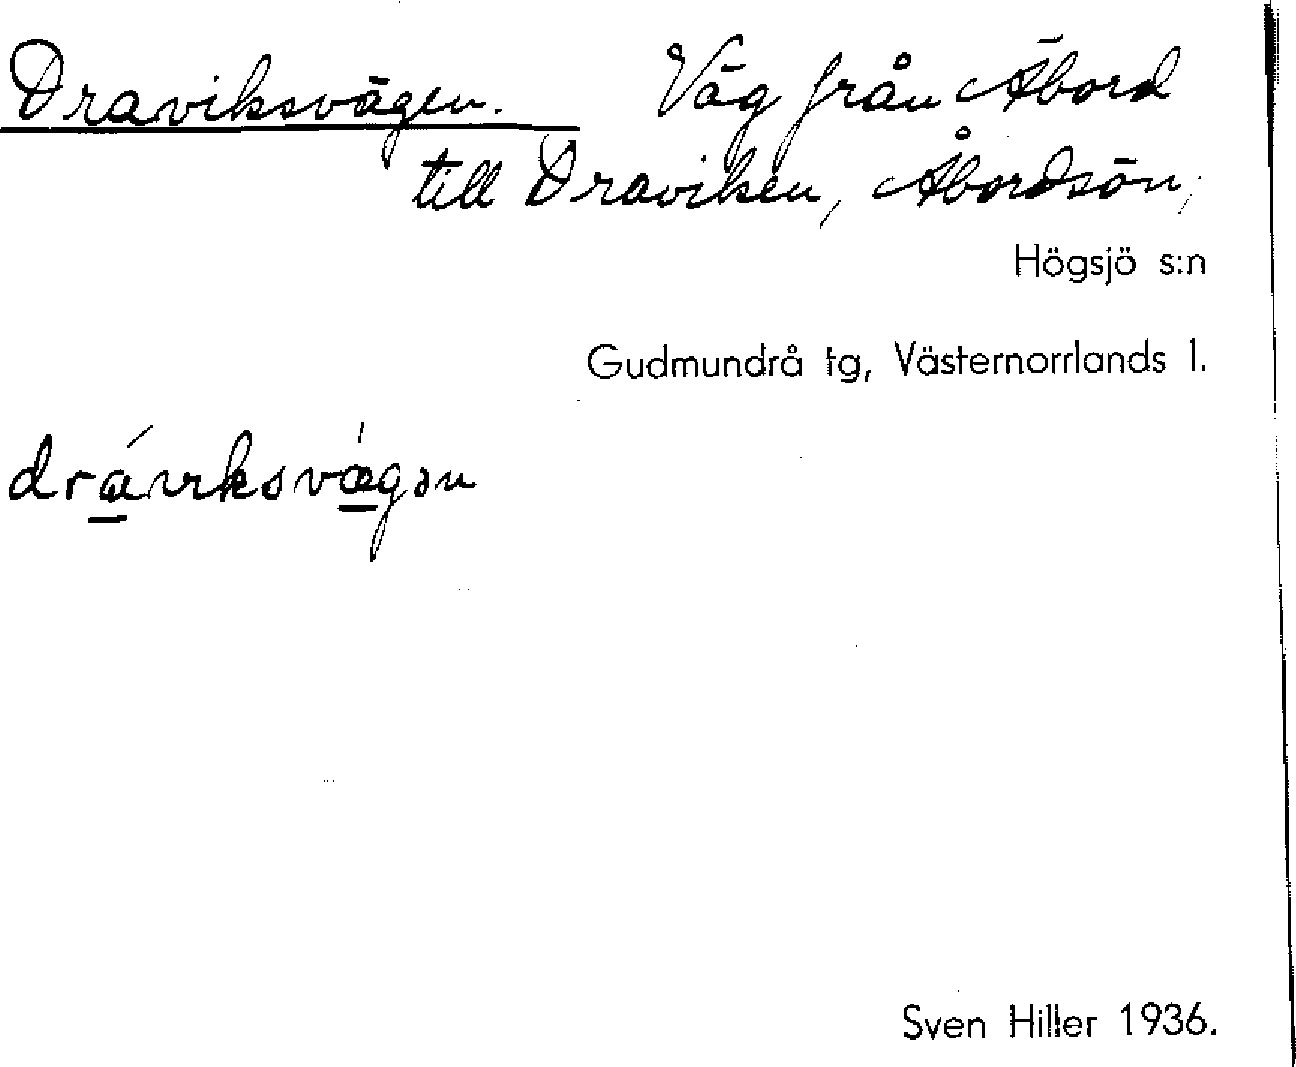 Draviksvägen. Väg från Äbord
till Draviken, Åbordsön,
Högsjö s:n
Gudmundrå tg, Västernorrlands l.
drávıksvæ̀gən
Sven Hiller 1936.